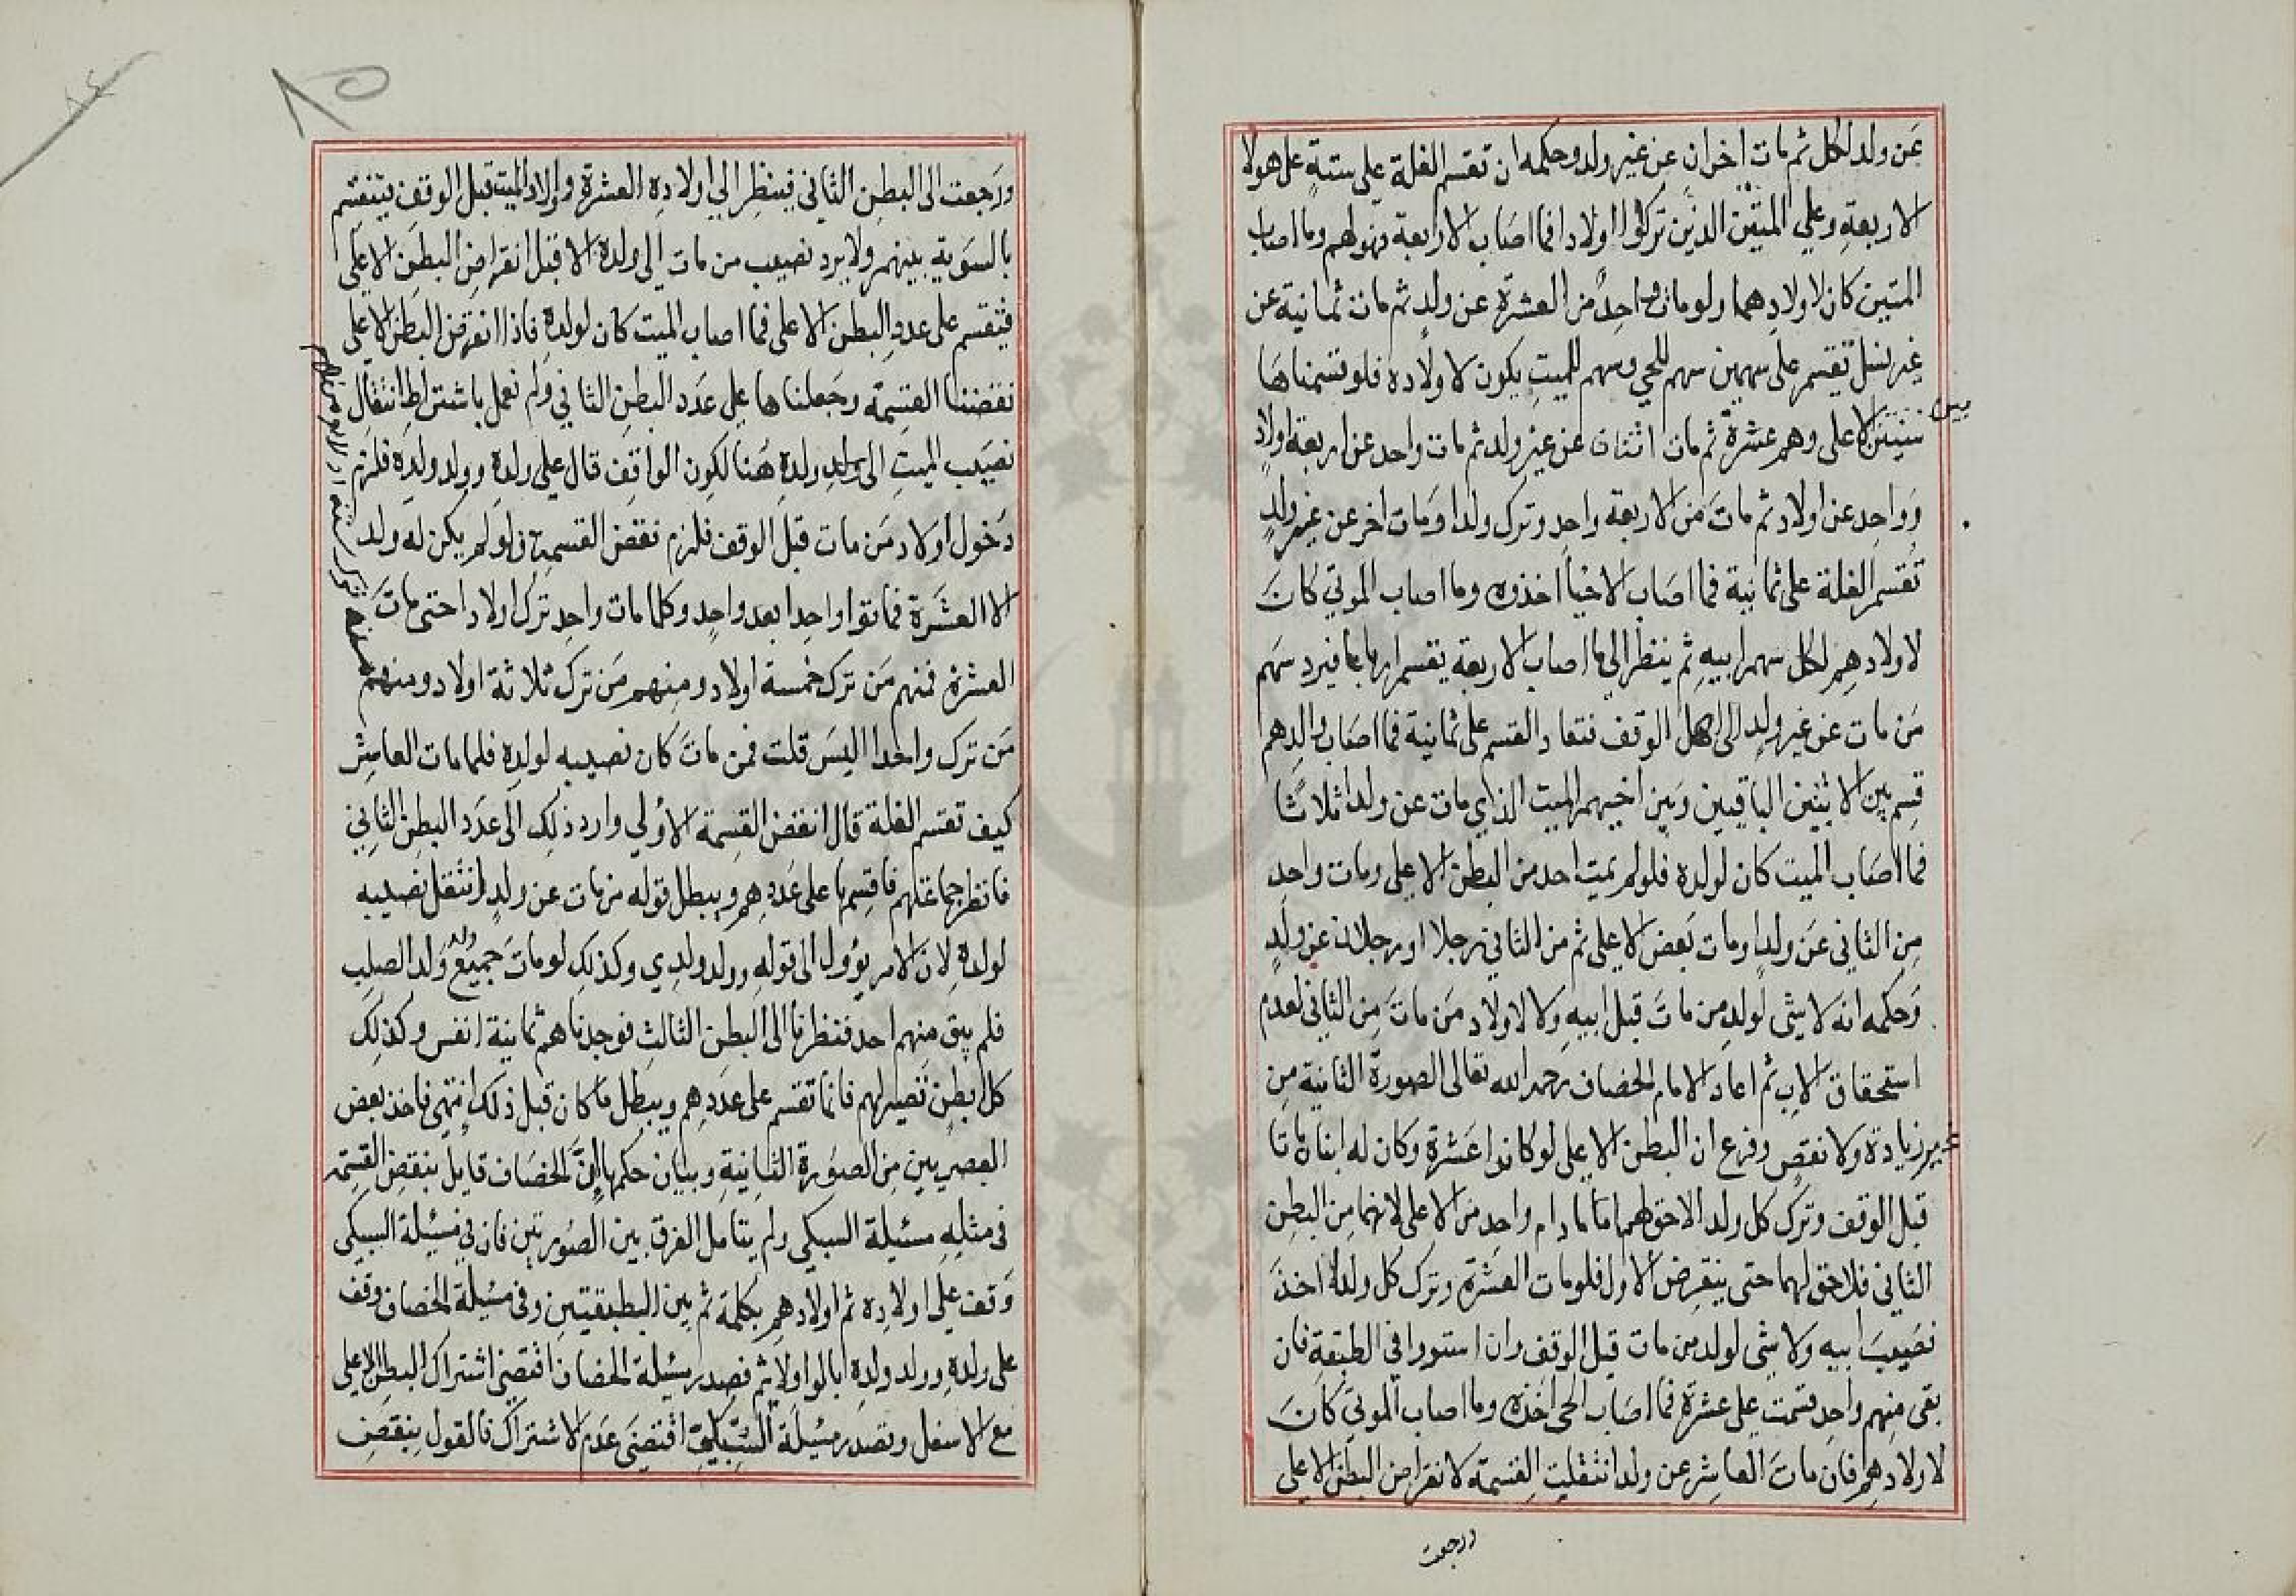 عن ولد لكل ثم مات اخوان عن غير ولد وحكمه ان تقسم الغلة على ستة على هولا
الاربعة وعلى الميتين الذين تركوا اولادا فما اصاب الاربعة فهو لهم وما اصاب
الميتين كان لاولادهما ولو مات واحد من العشرة عن ولد ثم مات ثمانية عن
غير نسل تقسم على سهمين سهم للحي وسهم للميت يكون لاولاده فلو قسمناها
بين
سنين الاعلى وهم عشرة ثم مات اثنان عن غير ولد ثم مات واحد عن اربعة اولاد
وواحد عن اولاد ثم مات من الاربعة واحد وترك ولدا ومات اخر عن غير ولد
تقسم الغلة على ثمانية فما اصاب الاحيا اخذوه وما اصاب الموتي كان
لاولادهم لكل سهم ابيه ثم ينظر الى ما اصاب الاربعة يقسم ارباعا فيرد سهم
من مات عن غير ولد الى اهل الوقف فتعاد القسم على ثمانية فما اصاب والدهم
قسم بين الاثنين الباقيين وبين اخيهم الميت الذي مات عن ولد اثلاثا
فما اصاب الميت كان لولده فلو لم يمت احد من البطن الاعلى ومات واحد
من الثاني عن ولد او مات بعض الاعلى ثم من الثاني رجلا او رجلان عن ولد
وحكمه انه لا شي لولد من مات قبل ابيه ولا لاولاد من مات من الثاني لعدم
استحقاق الاب ثم اعاد الامام الخصاف رحمه الله تعالى الصورة الثانية من
غير زيادة ولا نقص وفرع ان البطن الاعلى لو كانوا عشرة وكان له ابنان ماتا
قبل الوقف وترك كل ولد الا حق لهما ما دام واحد من الاعلى لانهما من البطن
الثاني فلا حق لهما حتى ينقرض الاول فلو مات العشرة وترك كل ولدا اخذ
نصيب ابيه ولا شي لولد من مات قبل الوقف وان استووا في الطبقة فان
بقى منهم واحد قسمت على عشرة فما اصاب الحي اخذه وما اصاب الموتي كان
لاولادهم فان مات العاشر عن ولد انتقلت القسمة لانقراض البطن الاعلى
ورجعت
٨٥
ورجعت الى البطن الثاني فينظر الى اولاده العشرة واولاد الميت قبل الوقف فيقسم
بالسوية بينهم ولا يرد نصيب من مات الى ولده الا قبل انقراض البطن الاعلى
فيقسم على عدد البطن الاعلى فما اصاب الميت كان لولده فاذا انقرض البطن الاعلى
نقضنا القسمة وجعلناها على عدد البطن الثاني ولم نعمل باشتراط انتقال
نصيب الميت الى ولد ولده هنا لكون الواقف قال على ولده وولد ولده فلزم
دخول اولاد من مات قبل الوقف فلزم نقض القسمة فلو لم يكن له ولد
الا العشرة فماتوا واحدا بعد واحد وكلما مات واحد ترك اولادا حتى مات
العشرة فمنهم من ترك خمسة اولاد ومنهم من ترك ثلاثة اولاد ومنهم
من ترك واحدا اليس قلت فمن مات كان نصيبه لولده فلما مات العاشر
كيف تقسم الغلة قال انقض القسمة الاولى وارد ذلك الى عدد البطن الثاني
فانظر جماعتهم فاقسمها على عددهم ويبطل قوله من مات عن ولد انتقل نصيبه
لولده لان الامر يؤول الى قوله وولد ولدي وكذلك لو مات جميع ولد ولد الصلب
فلم يبق منهم احد فنظرنا الى البطن الثالث فوجدناهم ثمانية انفس وكذلك
كل بطن تصير لهم فانما تقسم على عددهم ويبطل ما كان قبل ذلك انتهى فاخذ بعض
العصريين من الصورة الثانية وبيان حكمها ان الخصاف قايل بنقض القسمة
في مثله مسئلة السبكي ولم يتامل الفرق بين الصورتين فان في مسئلة السبكي
وقف على اولاده ثم اولادهم بكلمة ثم بين الطبقتين وفي مسئلة الخصاف وقف
على ولده وولد ولده بالواو لا بثم فصدر مسئلة الخصاف اقتضى اشتراك البطن الاعلى
مع الاسفل وصدر مسئلة السبكي اقتضى عدم الاشتراك فالقول بنقض